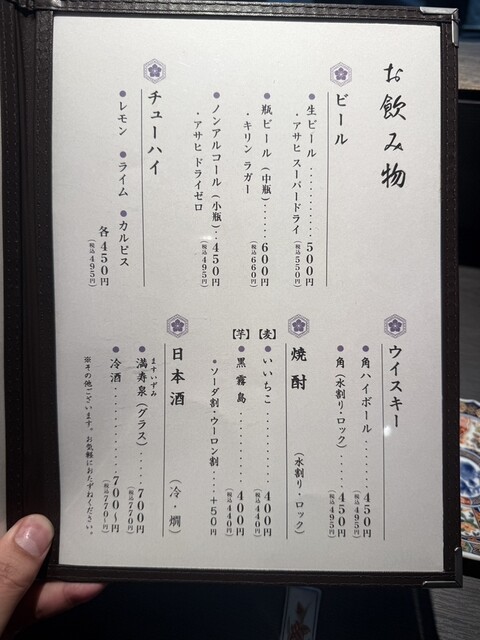 お飲み物
ビール
●生ビール‥‥‥‥500円
（税込550円）
・アサヒ スーパードライ
●瓶ビール（中瓶）‥‥600円
（税込660円）
・キリン ラガー
●ノンアルコール（小瓶）‥450円
（税込495円）
・アサヒ ドライゼロ
チューハイ
●レモン ●ライム ●カルピス
各450円
（税込495円）
ウイスキー
●角ハイボール‥‥‥450円
（税込495円）
●角（水割り・ロック）‥‥450円
（税込495円）
焼酎 （水割り・ロック）
【麦】●いいちこ‥‥‥‥400円
（税込440円）
【芋】●黒霧島‥‥‥‥400円
（税込440円）
＊ソーダ割・ウーロン割‥‥＋50円
日本酒 （冷・燗）
ますいずみ
●満寿泉（グラス）‥‥700円
（税込770円）
●冷酒‥‥‥‥700〜円
（税込770〜円）
※その他ございます。お気軽におたずねください。